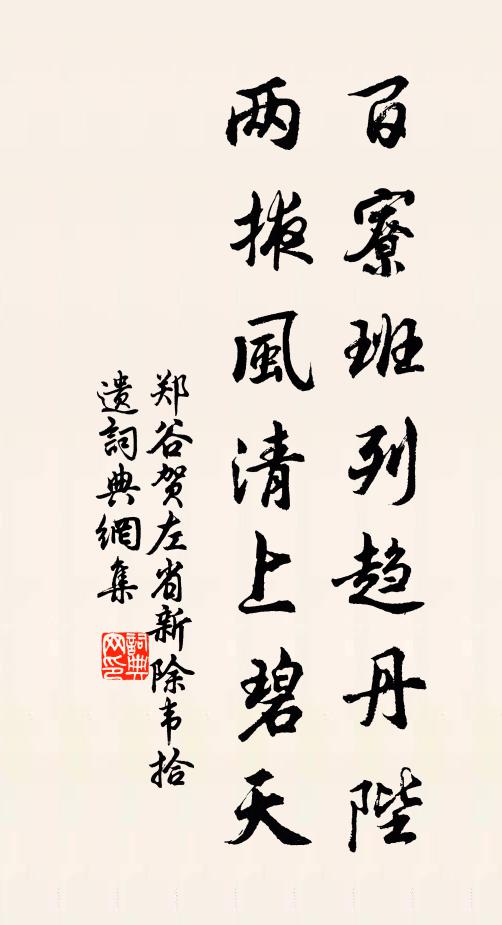 百寮班列趋丹陛
两掖風清上碧天
郑谷贺左省新除韦拾
遗詞典網集
詞典網印